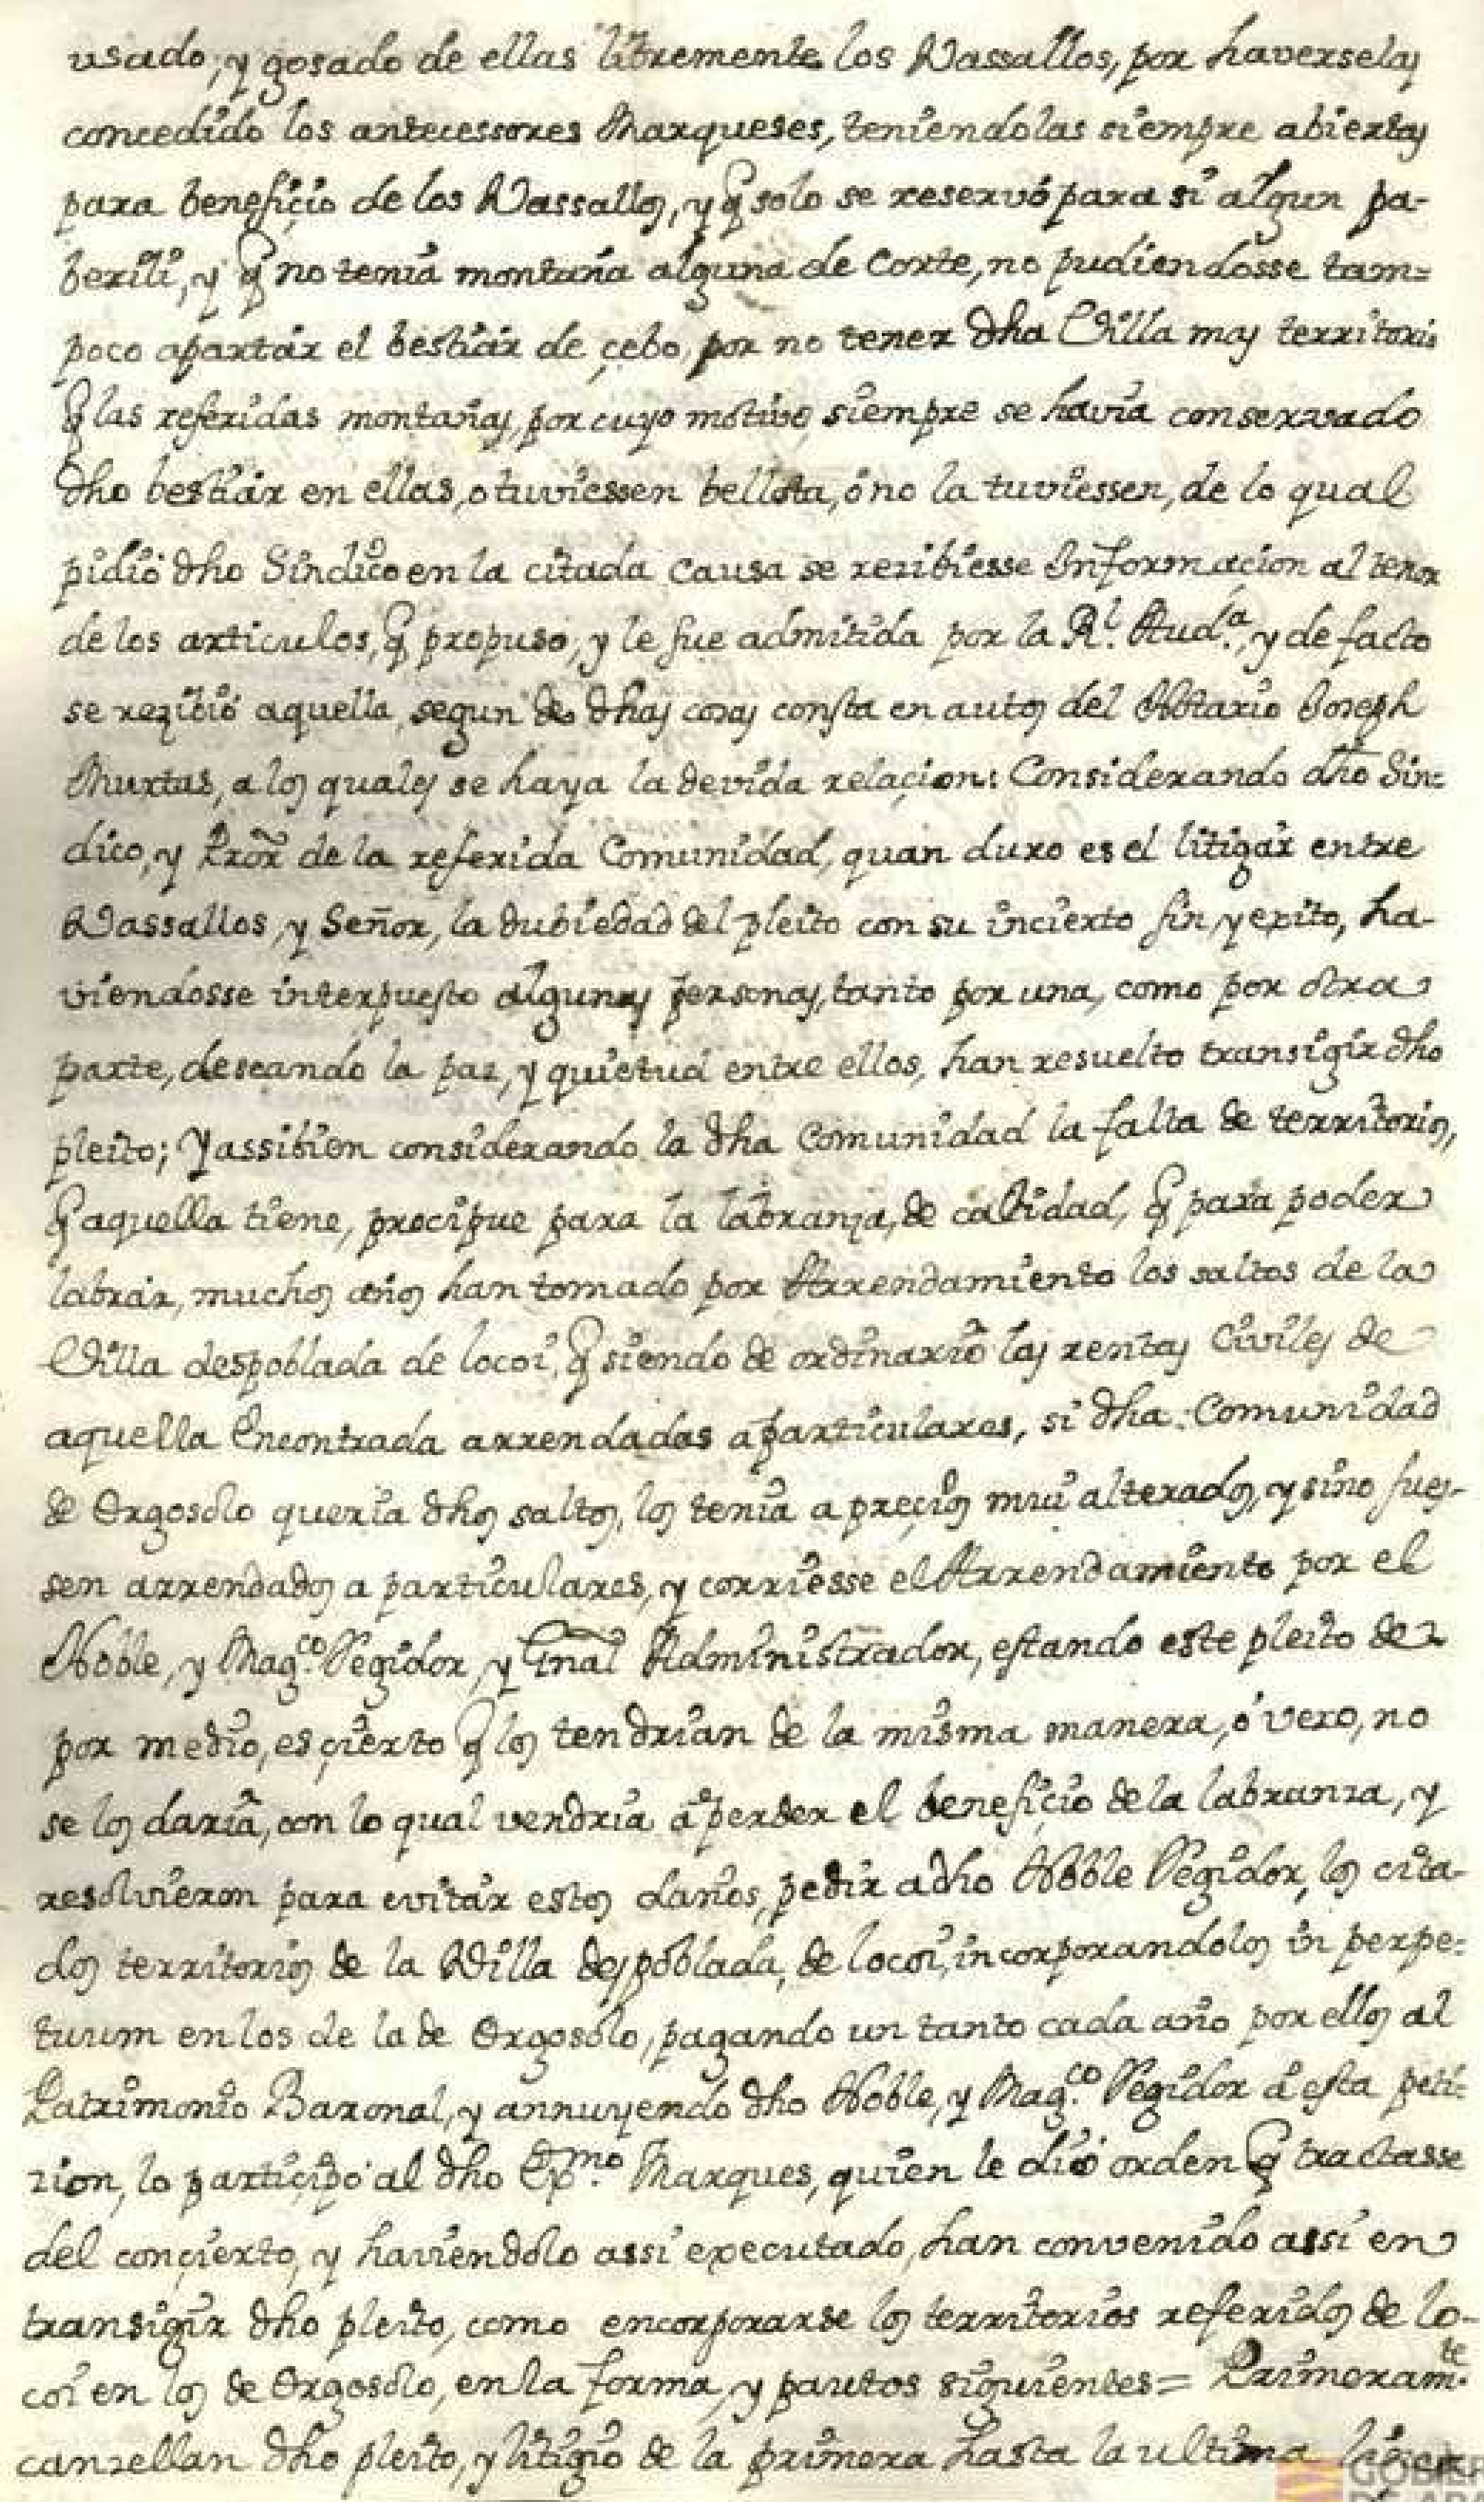 usado, y gosado de ellas libremente los Vassallos, por haverselas
concedido los antecessores Marqueses, teniendolas siempre abiertas
para beneficio de los Vassallos, y q̃ solo se reservó para si algun pa-
berili, y q̃ no tenia montaña alguna de Corte, no pudiendosse tam=
poco apartar el bestiar de çebo, por no tener dha Villa mas territorio
q̃ las referidas montañas, por cuyo motivo siempre se havia conservado
dho bestiar en ellas, o tuviessen bellota, ó no la tuviessen, de lo qual
pidió dho Sindico en la citada Causa se recibiesse Informacion al tenor
de los articulos, q̃ propuso, y le fue admitida por la R.l Aud.a, y de facto
se rezibió aquella, segun de dhas cosas consta en autos del Notario Joseph
Murtas, a los quales se haya la devida relaçion: Considerando dho Sin=
dico, y Pror de la referida Comunidad, quan duro es el litigar entre
Vassallos, y Señor, la dubiedad del pleito con su incierto fin, y exito, ha-
viendosse interpuesto algunas personas, tanto por una, como por otra
parte, deseando la paz, y quietud entre ellos, han resuelto transigir dho
pleito; Y assibien considerando la dha Comunidad la falta de territorios,
q̃ aquella tiene, precipue para la labranza, de calidad, q̃ para poder
labrar, muchos años han tomado por Arrendamiento los saltos de la
Villa despoblada de locoi, q̃ siendo de ordinario las rentas Civiles de
aquella Encontrada arrendadas a particulares, si dha Comunidad
de Orgosolo queria dhos saltos, los tenia a preçios mui alterados, y sino fues-
sen arrendados a particulares, y corriesse el Arrendamiento por el
Noble, y Mag.co Regidor, y Gnal Administrador, estando este pleito de
por medio, es çierto q̃ los tendrian de la misma manera, ó vero, no
se los daria, con lo qual vendria á perder el beneficio de la labranza, y
resolvieron para evitar estos daños, pedir a dho Noble Regidor, los cita-
dos territorios de la Villa despoblada, de locoi, incorporandolos in perpe=
tuum en los de la de Orgosolo, pagando un tanto cada año por ellos al
Patrimonio Baronal, y annuyendo dho Noble, y Mag.co Regidor á esta peti=
zion, lo partiçipó al dho Ex.mo Marques, quien le dió orden q̃ tractasse
del conçierto, y haviendolo assi executado, han convenido assi en
transigir dho pleito, como encorporarse los territorios referidos de lo-
coi en los de Orgosolo, en la forma, y pautos siguientes= Primeram.te
canzellan dho pleito, y litigio de la primera hasta la ultima
GOBIER